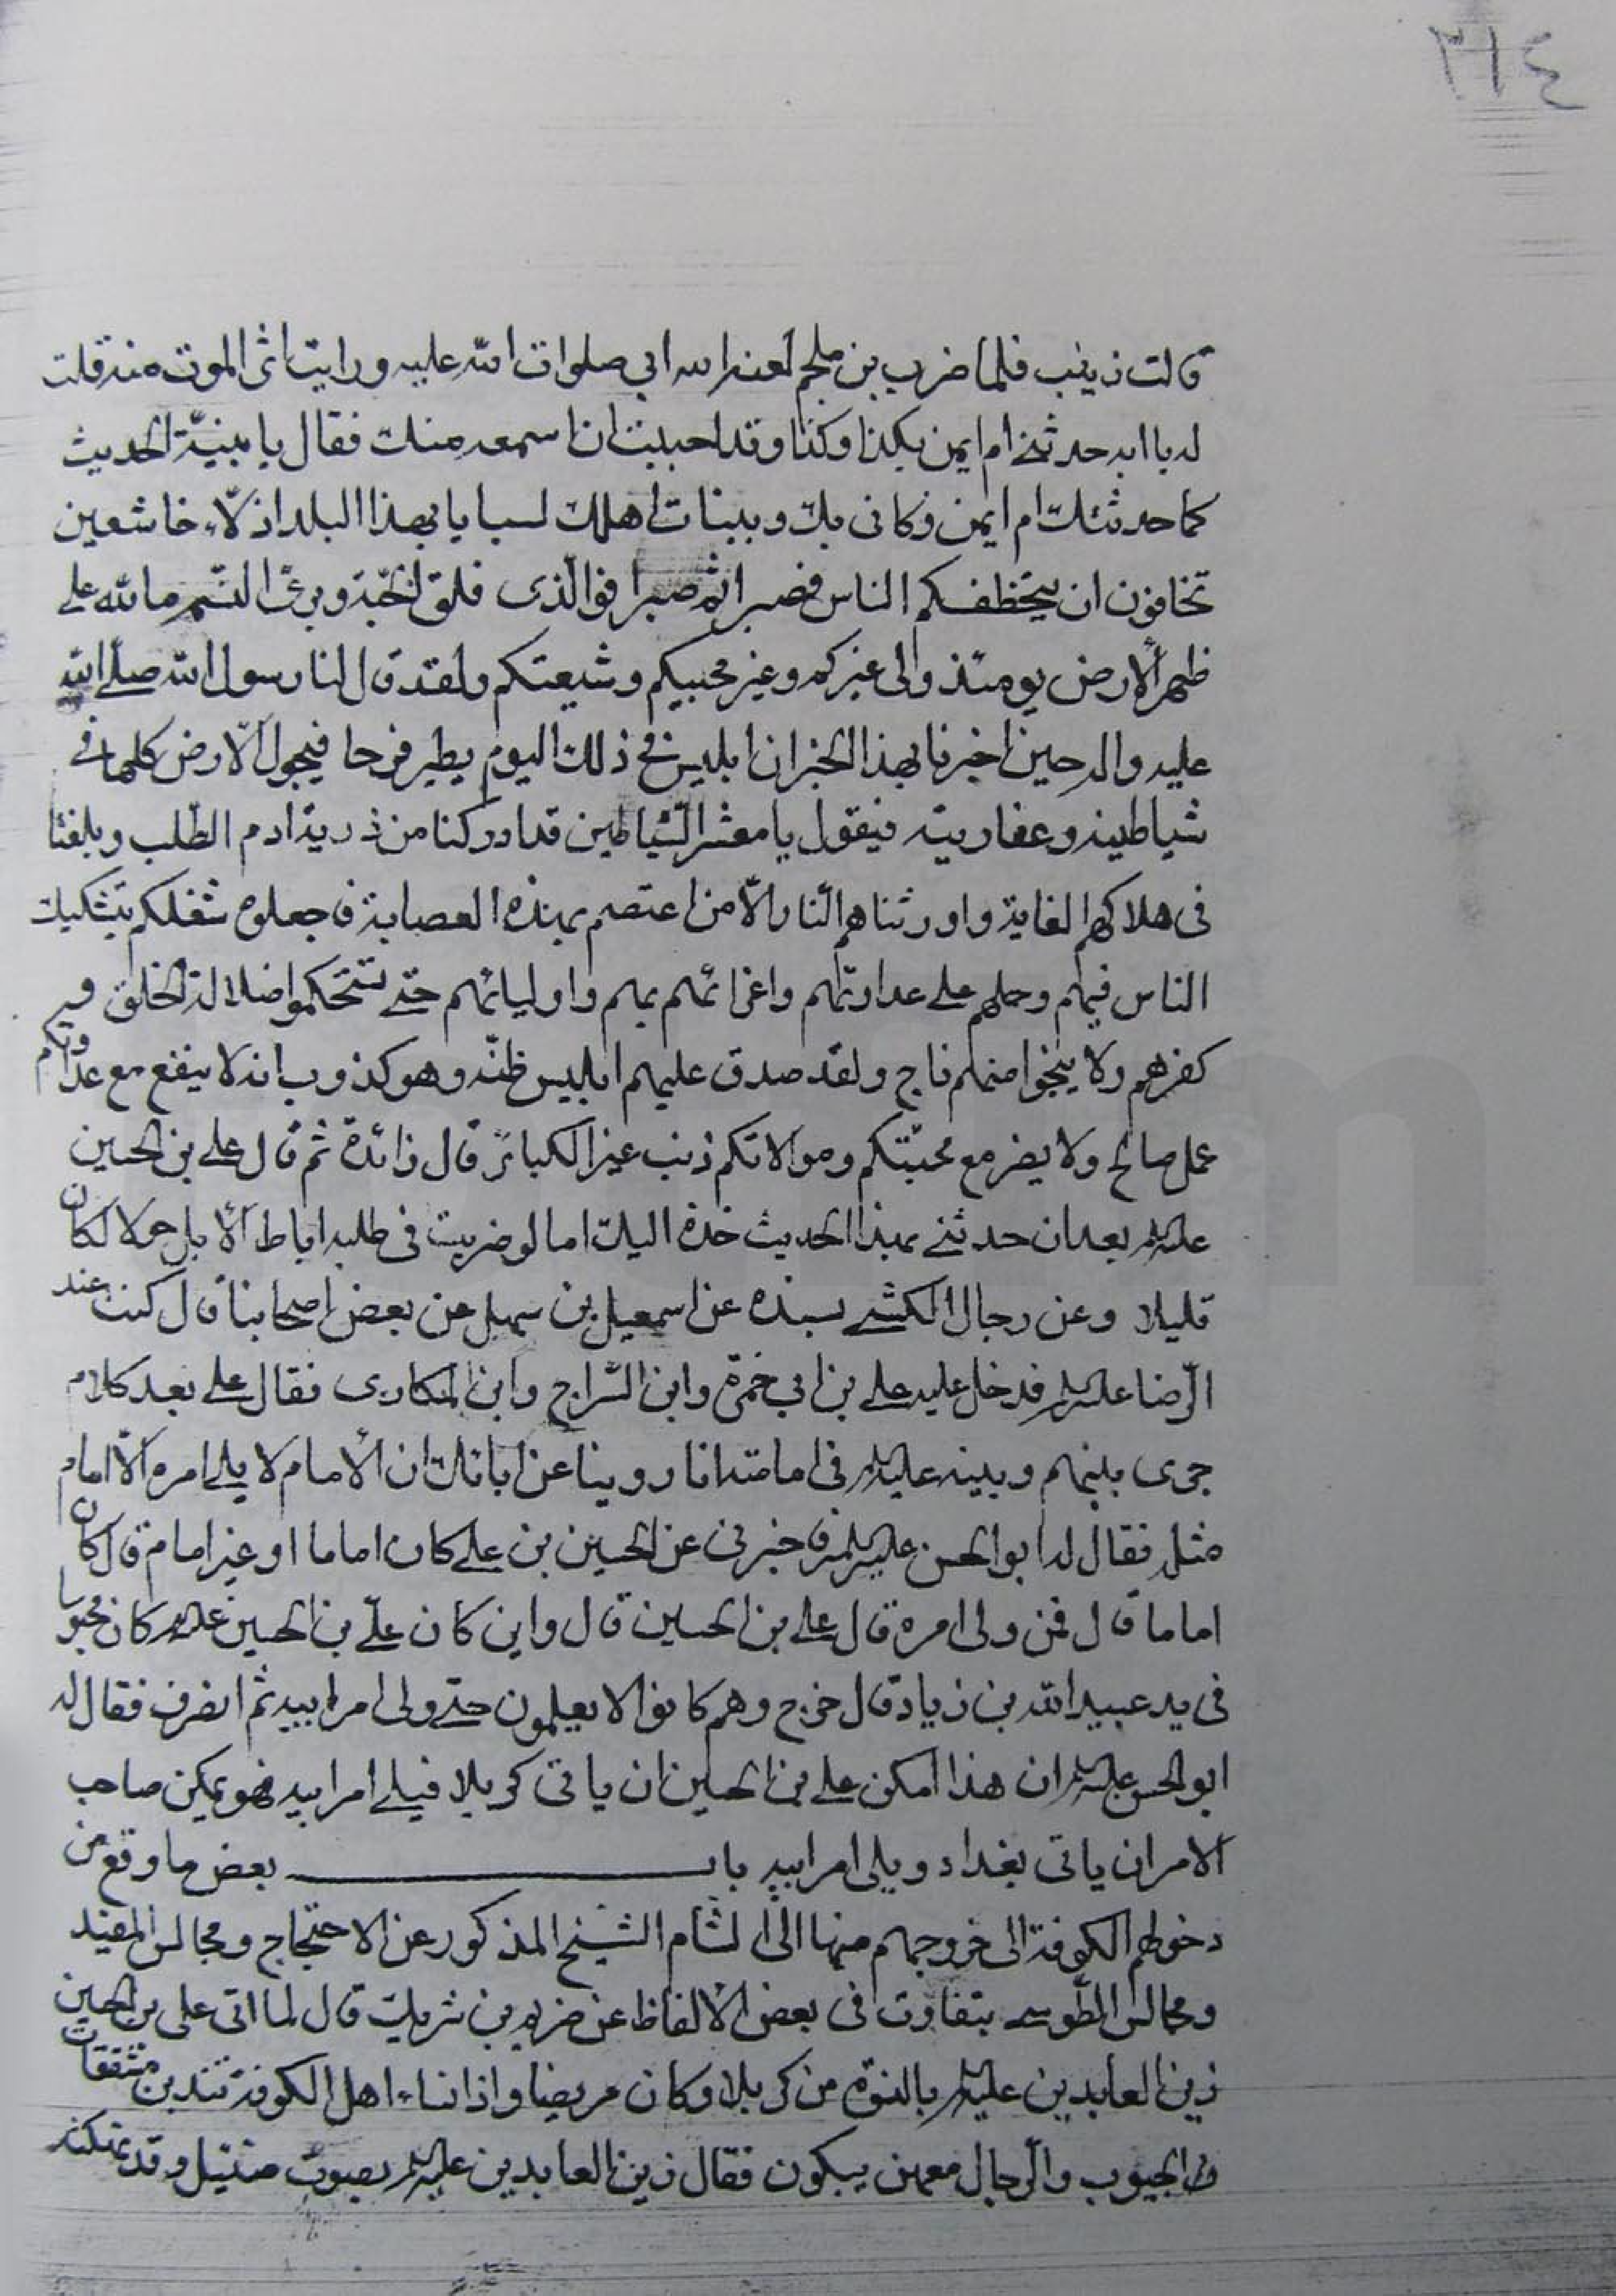 ٣١٤
قالت زينب فلما ضرب بن ملجم لعنه الله ابي صلوات الله عليه ورايت اثر الموت منه قلت
له يا ابه حدثني ام ايمن بكذا وكذا وقد احببت ان اسمعه منك فقال يا بنيّة الحديث
كما حدثتك ام ايمن وكاني بك وببنات اهلك لسبايا بهذا البلد اذلاّء خاشعين
تخافون ان يتخطفكم الناس فصبرا ثم صبرا فوالّذى فلق الحبّة وبرئ النسم ما لله على
ظهر الأرض يومئذ والى غيركم وغير محبيكم وشيعتكم ولقد قال لنا رسول الله صلّى الله
عليه واله حين اخبرنا بهذا الخبر ان ابليس في ذلك اليوم يطير فرحا فيجول الأرض كلها في
شياطينه وعفاريته فيقول يا معشر الشياطين قد ادركنا من ذرية ادم الطلب وبلغنا
في هلاكهم الغاية واورثناهم النّار الاّ من اعتصم بهذه العصابة فاجعلوه شغلكم بتشكيك
الناس فيهم وحملهم على عداوتهم واغرائهم بهم واوليائهم حتى تستحكموا ضلالة الخلق و
كفرهم ولا ينجوا منهم ناج ولقد صدق عليهم ابليس ظنّه وهو كذوب انه لا ينفع مع عداوتكم
عمل صالح ولا يضر مع محبّتكم وموالاتكم ذنب غير الكبائر قال زائدة ثم قال على بن الحسين
عليه السلم بعد ان حدثني بهذا الحديث خذه اليك اما لو ضربت في طلبه اباط الأبل حولا لكان
قليلا وعن رجال الكشى بسنده عن اسمعيل بن سهل عن بعض اصحابنا قال كنت عند
الرّضا عليه السلم فدخل عليه على بن ابي حمزة وابن السّراج وابن المكارى فقال على بعد كلام
جرى بينهم وبينه عليه السلم في امامته انا روينا عن ابائك ان الأمام لا يلى امره الاّ امام
مثله فقال له ابو الحسن عليه السلم فاخبرني عن الحسين بن على كان اماما او غير امام قال كان
اماما قال فمن ولى امره قال على بن الحسين قال واين كان علىّ بن الحسين عليه السلم كان محبوسا
في يد عبيد الله بن زياد قال خرج وهم كانوا لا يعلمون حتّى ولى امر ابيه ثم انصرف فقال له
ابو الحسن عليه السلم ان هذا امكن على بن الحسين ان ياتى كربلا فيلى امر ابيه فهو يمكن صاحب
الامر ان ياتى بغداد ويلى امر ابيه باب بعض ما وقع من
دخولهم الكوفة الى خروجهم منها الى الشام الشيخ المذكور عن الاحتجاج ومجالس المفيد
ومجالس الطّوسى بتفاوت في بعض الألفاظ عن بن شريك قال لما اتى على بن الحسين
زين العابدين عليه السلم بالنسوة من كربلا وكان مريضا واذا نساء اهل الكوفة تندبن مشققات
الجيوب والرّجال معهن يبكون فقال زين العابدين عليه السلم بصوت ضئيل وقد نهكته